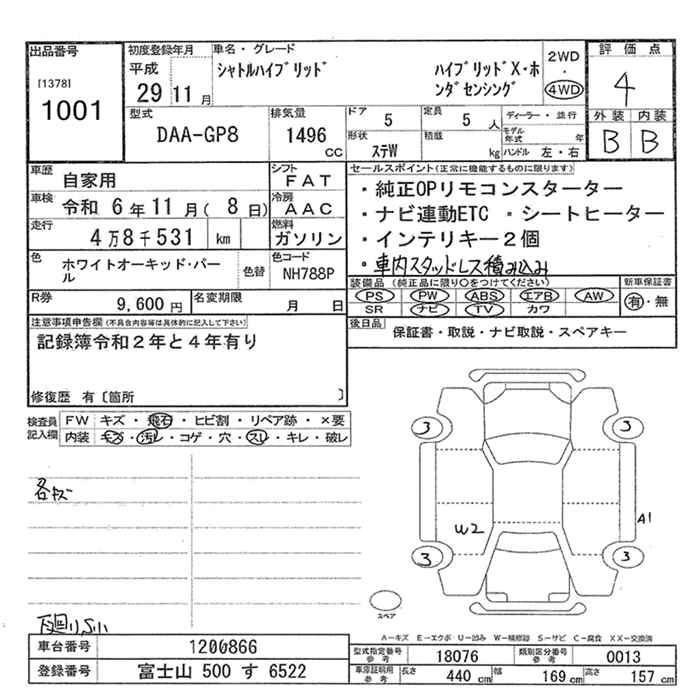 出品番号
[1378]
1001
初度登録年月
平成
29 11 月
車名・グレード
シャトルハイブリッド ハイブリッドX・ホンダセンシング
2WD
・
4WD
評価点
4
外装 内装
B B
型式
DAA-GP8
排気量
1496
CC
ドア 5
定員 5 人
形状 ステW
積載 kg
ディーラー・並行
モデル年式 年
ハンドル 左・右
車歴 自家用
シフト FAT
車検 令和 6年11月( 8日)
冷房 AAC
走行 4万8千531 km
燃料 ガソリン
色 ホワイトオーキッド・パール
色替
色コード NH788P
R券 9,600 円
名変期限 月 日
セールスポイント(正常に機能するものに限ります)
・純正OPリモコンスターター
・ナビ連動ETC ・シートヒーター
・インテリキー2個
・車内スタッドレス積み込み
装備品 (純正品に限り○をつけてください)
PS PW ABS エアB AW
SR ナビ TV カワ
新車保証書
有・無
後日品 保証書・取説・ナビ取説・スペアキー
注意事項申告欄(不具合内容等は具体的に記入して下さい)
記録簿令和2年と4年有り
修復歴 有〔箇所 〕
検査員記入欄
FW キズ・飛石・ヒビ割・リペア跡・×要
内装 キズ・汚レ・コゲ・穴・スレ・キレ・破レ
各キズ
下廻りふい
3 3
W2 A1
3 3
スペア
A-キズ E-エクボ U-凹み W-補修跡 S-サビ C-腐食 XX-交換済
車台番号 1200866
登録番号 富士山 500 す 6522
型式指定番号 参考 18076
類別区分番号 参考 0013
車庫証明用 参考 長さ 440 cm 幅 169 cm 高さ 157 cm